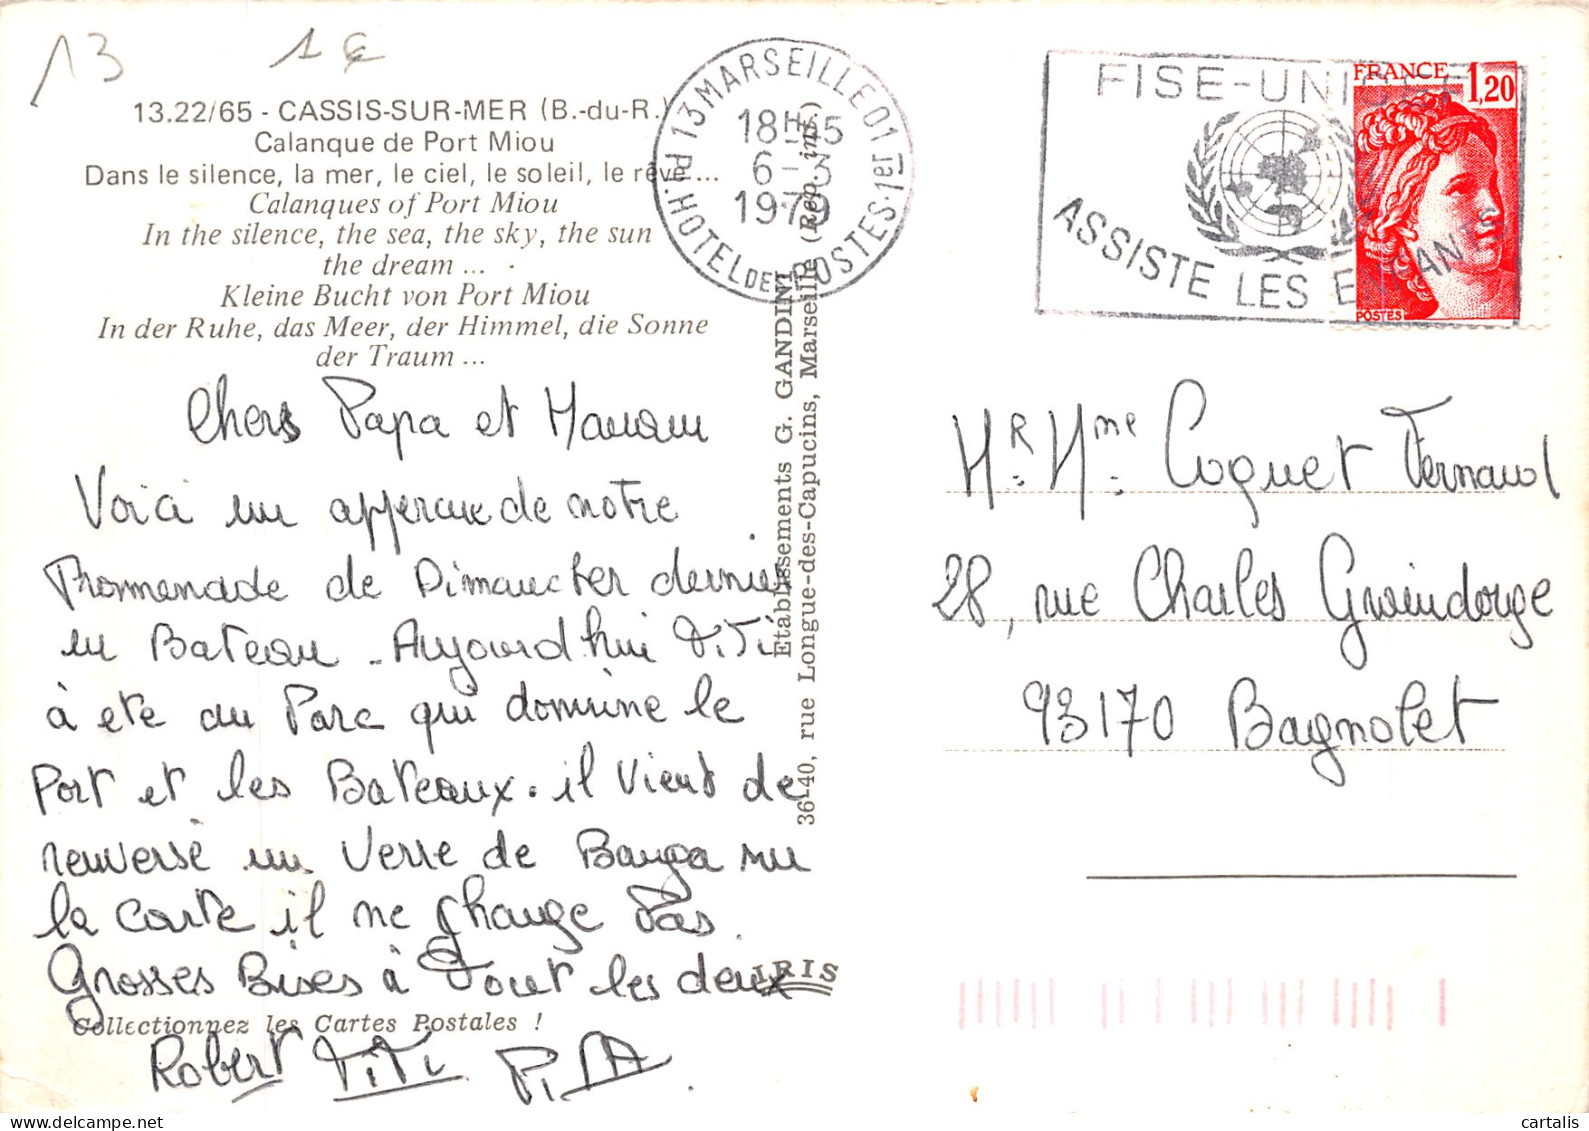 13 1€
13.22/65 - CASSIS-SUR-MER (B.-du-R.)
Calanque de Port Miou
Dans le silence, la mer, le ciel, le soleil, le rêve...
Calanques of Port Miou
In the silence, the sea, the sky, the sun
the dream ...
Kleine Bucht von Port Miou
In der Ruhe, das Meer, der Himmel, die Sonne
der Traum ...
Chers Papa et Maman
Voici un apperçue de notre
Promenade de Dimancher dernier
en Bateau - Aujourd'hui TiTi
à ete au Parc qui domine le
Port et les Bateaux. il vient de
renversé un Verre de Banga sur
la carte il ne change Pas
Grosses Bises à Tout les deux
Collectionnez les Cartes Postales !
Robert TiTi
Etablissements G. GANDINI
36-40, rue Longue-des-Capucins, Marseille (Rep. int.)
IRIS
13 MARSEILLE 01
18H45
6-3
1979
PL. HOTEL DES POSTES-1ER
FISE-UNICEF
ASSISTE LES ENFANTS
FRANCE 1,20
POSTES
Mr. Mme. Coquet Fernand
28, rue Charles Graindorge
93170 Bagnolet
cartalis
www.delcampe.net